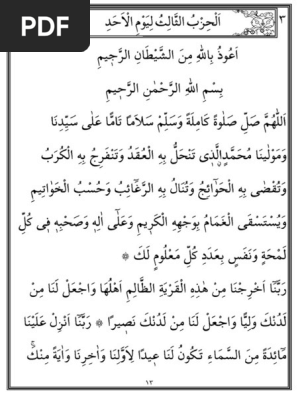 PDF
٣
اَلْحِزْبُ الثَّالِثُ لِيَوْمِ الْاَحَدِ
اَعُوذُ بِاللّٰهِ مِنَ الشَّيْطَانِ الرَّجٖيمِ
بِسْمِ اللّٰهِ الرَّحْمٰنِ الرَّحٖيمِ
اَللّٰهُمَّ صَلِّ صَلٰوةً كَامِلَةً وَسَلِّمْ سَلَامًا تَامًّا عَلٰى سَيِّدِنَا
وَمَوْلٰينَا مُحَمَّدٍ الَّذٖى تَنْحَلُّ بِهِ الْعُقَدُ وَتَنْفَرِجُ بِهِ الْكُرَبُ
وَتُقْضٰى بِهِ الْحَوَائِجُ وَتُنَالُ بِهِ الرَّغَائِبُ وَحُسْنُ الْخَوَاتٖيمِ
وَيُسْتَسْقَى الْغَمَامُ بِوَجْهِهِ الْكَرٖيمِ وَعَلٰٓى اٰلِهٖ وَصَحْبِهٖ فٖى كُلِّ
لَمْحَةٍ وَنَفَسٍ بِعَدَدِ كُلِّ مَعْلُومٍ لَكَ ۞
رَبَّنَٓا اَخْرِجْنَا مِنْ هٰذِهِ الْقَرْيَةِ الظَّالِمِ اَهْلُهَا وَاجْعَلْ لَنَا مِنْ
لَدُنْكَ وَلِيًّا وَاجْعَلْ لَنَا مِنْ لَدُنْكَ نَصٖيرًا ۞ رَبَّنَٓا اَنْزِلْ عَلَيْنَا
مَٓائِدَةً مِنَ السَّمَٓاءِ تَكُونُ لَنَا عٖيدًا لِاَوَّلِنَا وَاٰخِرِنَا وَاٰيَةً مِنْكَۚ
١٢